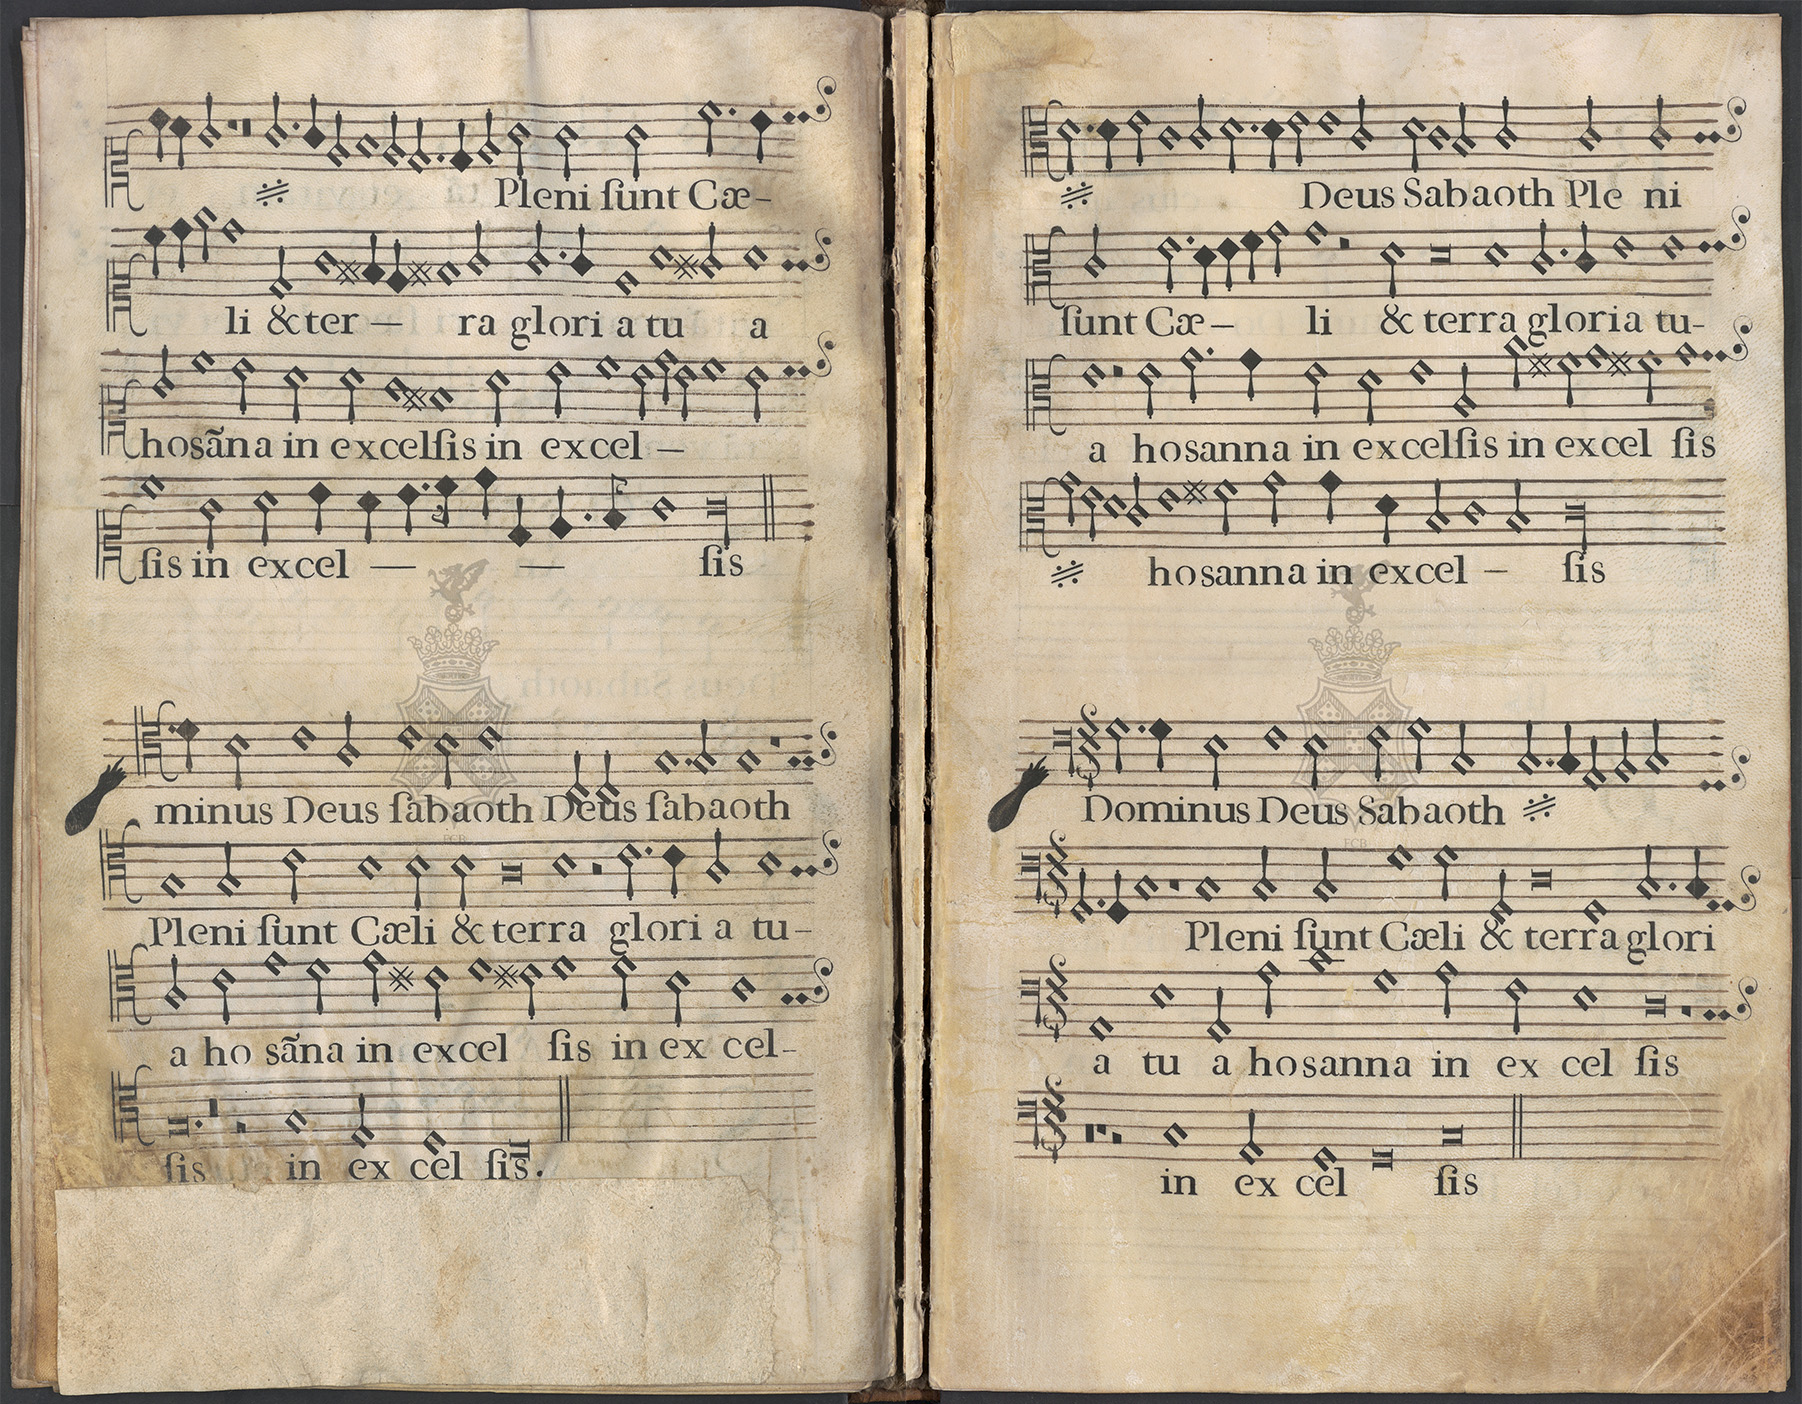 Pleni ſunt Cæ-
li & ter — ra glori a tu a
hosãna in excelſis in excel —
ſis in excel — — ſis
minus Deus ſabaoth Deus ſabaoth
Pleni ſunt Cæli & terra glori a tu-
a ho sãna in excel ſis in ex cel-
ſis in ex cel ſis.
Deus Sabaoth Ple ni
ſunt Cæ- li & terra gloria tu-
a hosanna in excelſis in excel ſis
hosanna in excel — ſis
Dominus Deus Sabaoth
Pleni ſunt Cæli & terra glori
a tu a hosanna in ex cel ſis
in ex cel ſis